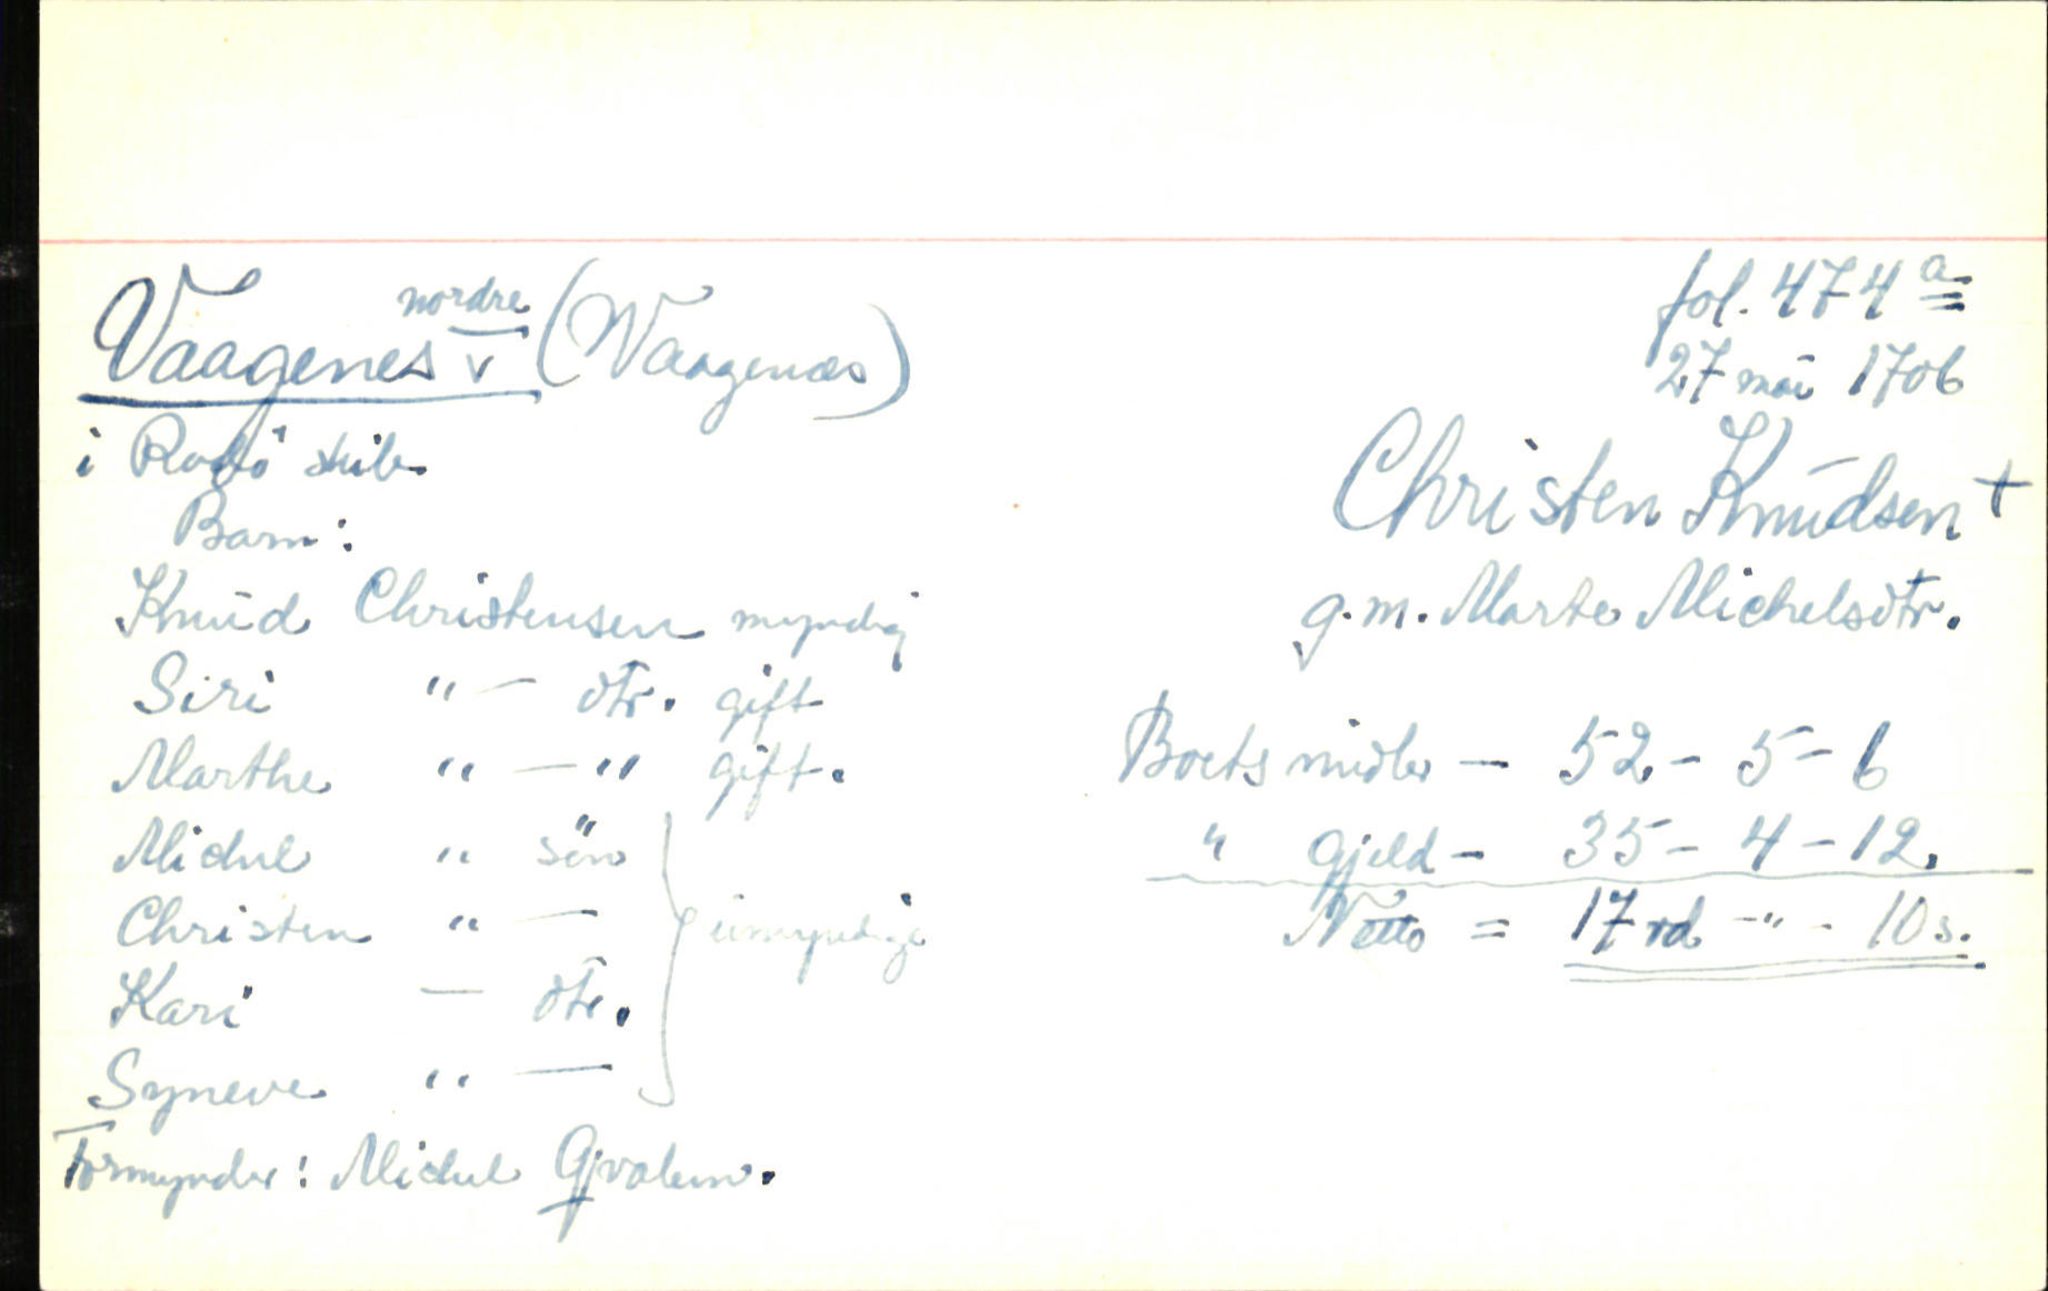 Vaagenes nordre (Waagenæs)
i Rodö skibr.
Barn:
Knud Christensen myndig
Siri " — dtr. gift
Marthe " — " gift.
Michel " sön
Christen " — umyndige
Kari — dtr.
Syneve " —
Formynder: Michel Gjvolum.
fol. 474 a
27 mai 1706
Christen Knudsen +
g.m. Marte Michelsdtr.
Boets midler — 52 - 5 - 6
" Gjeld - 35 - 4 - 12.
Netto = 17 rd - " - 10 s.